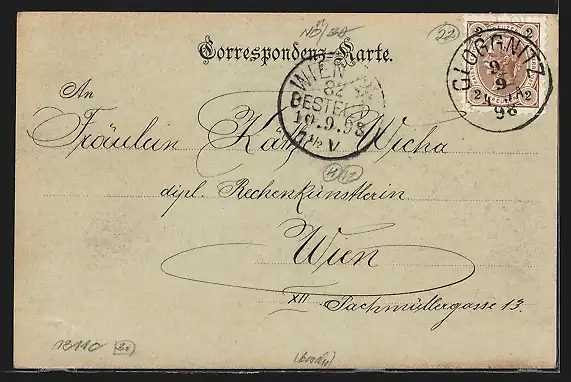 22
Correspondenz-Karte.
2 2
GLOGGNITZ
9/9
98
WIEN
82
BESTELLT
10.9.98
7½ V
An
Fräulein Kathi Wicha
dipl. Rechenkünstlerin
Wien
XII Pachmüllergasse 13.